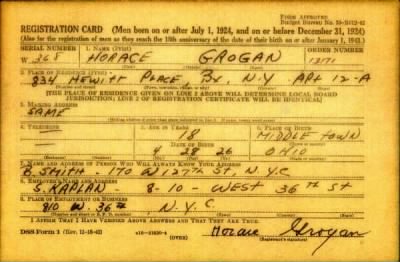 FORM APPROVED
REGISTRATION CARD (Men born on or after July 1, 1924, and on or before December 31, 1924)
(Also for the registration of men as they reach the 18th anniversary of the date of their birth on or after January 1, 1943.)
SERIAL NUMBER 1. NAME (Print) ORDER NUMBER
W 368 HORACE GROGAN 13171
(First) (Middle) (Last)
2. PLACE OF RESIDENCE (Print)
834 HEWITT PLACE, BX. N.Y APT 12-A
[THE PLACE OF RESIDENCE GIVEN ON LINE 2 ABOVE WILL DETERMINE LOCAL BOARD
JURISDICTION; LINE 2 OF REGISTRATION CERTIFICATE WILL BE IDENTICAL]
3. MAILING ADDRESS
SAME
4. TELEPHONE 5. AGE IN YEARS 6. PLACE OF BIRTH
18 MIDDLE TOWN
DATE OF BIRTH
9 28 26 OHIO
7. NAME AND ADDRESS OF PERSON WHO WILL ALWAYS KNOW YOUR ADDRESS
B. SMITH - 170 W 127TH ST, N.Y.C
8. EMPLOYER'S NAME AND ADDRESS
S. KAPLAN - 8-10 - WEST 36TH ST
9. PLACE OF EMPLOYMENT OR BUSINESS
810 W. 36TH N.Y.C.
I AFFIRM THAT I HAVE VERIFIED ABOVE ANSWERS AND THAT THEY ARE TRUE.
DSS Form 1 (OVER) Horace Grogan
(Registrant's signature)